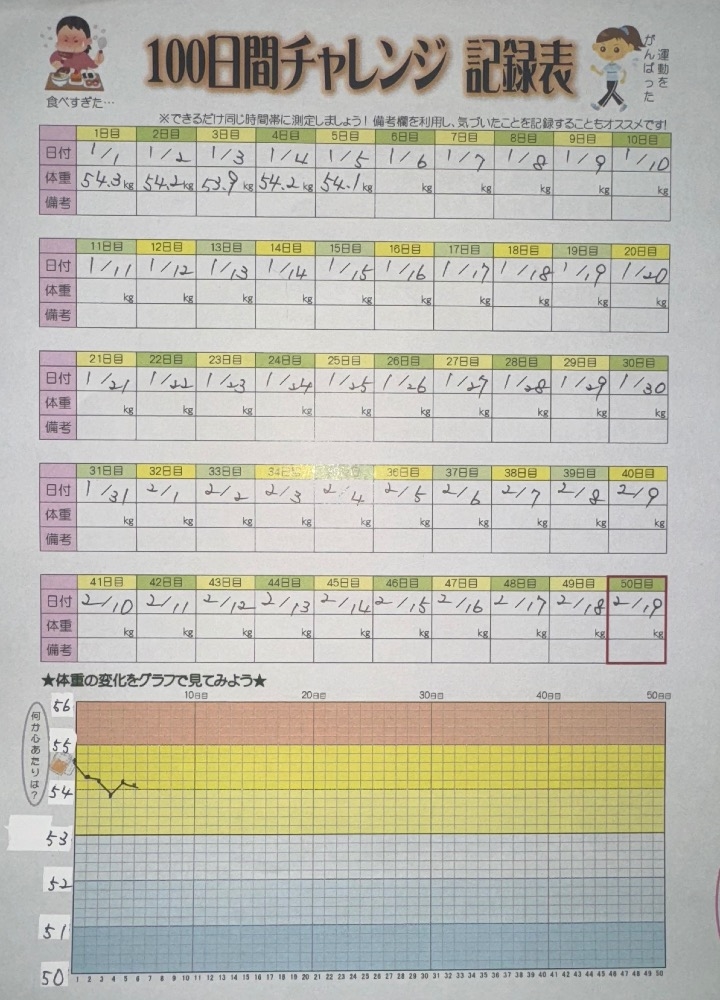 100日間チャレンジ 記録表
食べすぎた…
運動を
がんばった
※できるだけ同じ時間帯に測定しましょう！備考欄を利用し、気づいたことを記録することもオススメです！
1日目 2日目 3日目 4日目 5日目 6日目 7日目 8日目 9日目 10日目
日付 1/1 1/2 1/3 1/4 1/5 1/6 1/7 1/8 1/9 1/10
体重 54.3kg 54.2kg 53.9kg 54.2kg 54.1kg kg kg kg kg kg
備考
11日目 12日目 13日目 14日目 15日目 16日目 17日目 18日目 19日目 20日目
日付 1/11 1/12 1/13 1/14 1/15 1/16 1/17 1/18 1/19 1/20
体重 kg kg kg kg kg kg kg kg kg kg
備考
21日目 22日目 23日目 24日目 25日目 26日目 27日目 28日目 29日目 30日目
日付 1/21 1/22 1/23 1/24 1/25 1/26 1/27 1/28 1/29 1/30
体重 kg kg kg kg kg kg kg kg kg kg
備考
31日目 32日目 33日目 34日目 35日目 36日目 37日目 38日目 39日目 40日目
日付 1/31 2/1 2/2 2/3 2/4 2/5 2/6 2/7 2/8 2/9
体重 kg kg kg kg kg kg kg kg kg kg
備考
41日目 42日目 43日目 44日目 45日目 46日目 47日目 48日目 49日目 50日目
日付 2/10 2/11 2/12 2/13 2/14 2/15 2/16 2/17 2/18 2/19
体重 kg kg kg kg kg kg kg kg kg kg
備考
★体重の変化をグラフで見てみよう★
10日目 20日目 30日目 40日目 50日目
何か心あたりは？
56
55
54
53
52
51
50
1 2 3 4 5 6 7 8 9 10 11 12 13 14 15 16 17 18 19 20 21 22 23 24 25 26 27 28 29 30 31 32 33 34 35 36 37 38 39 40 41 42 43 44 45 46 47 48 49 50